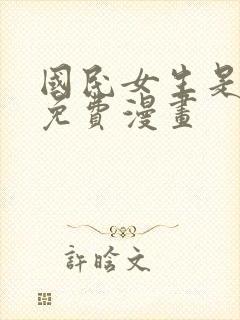 國民女生是
免費漫畫
許晗文